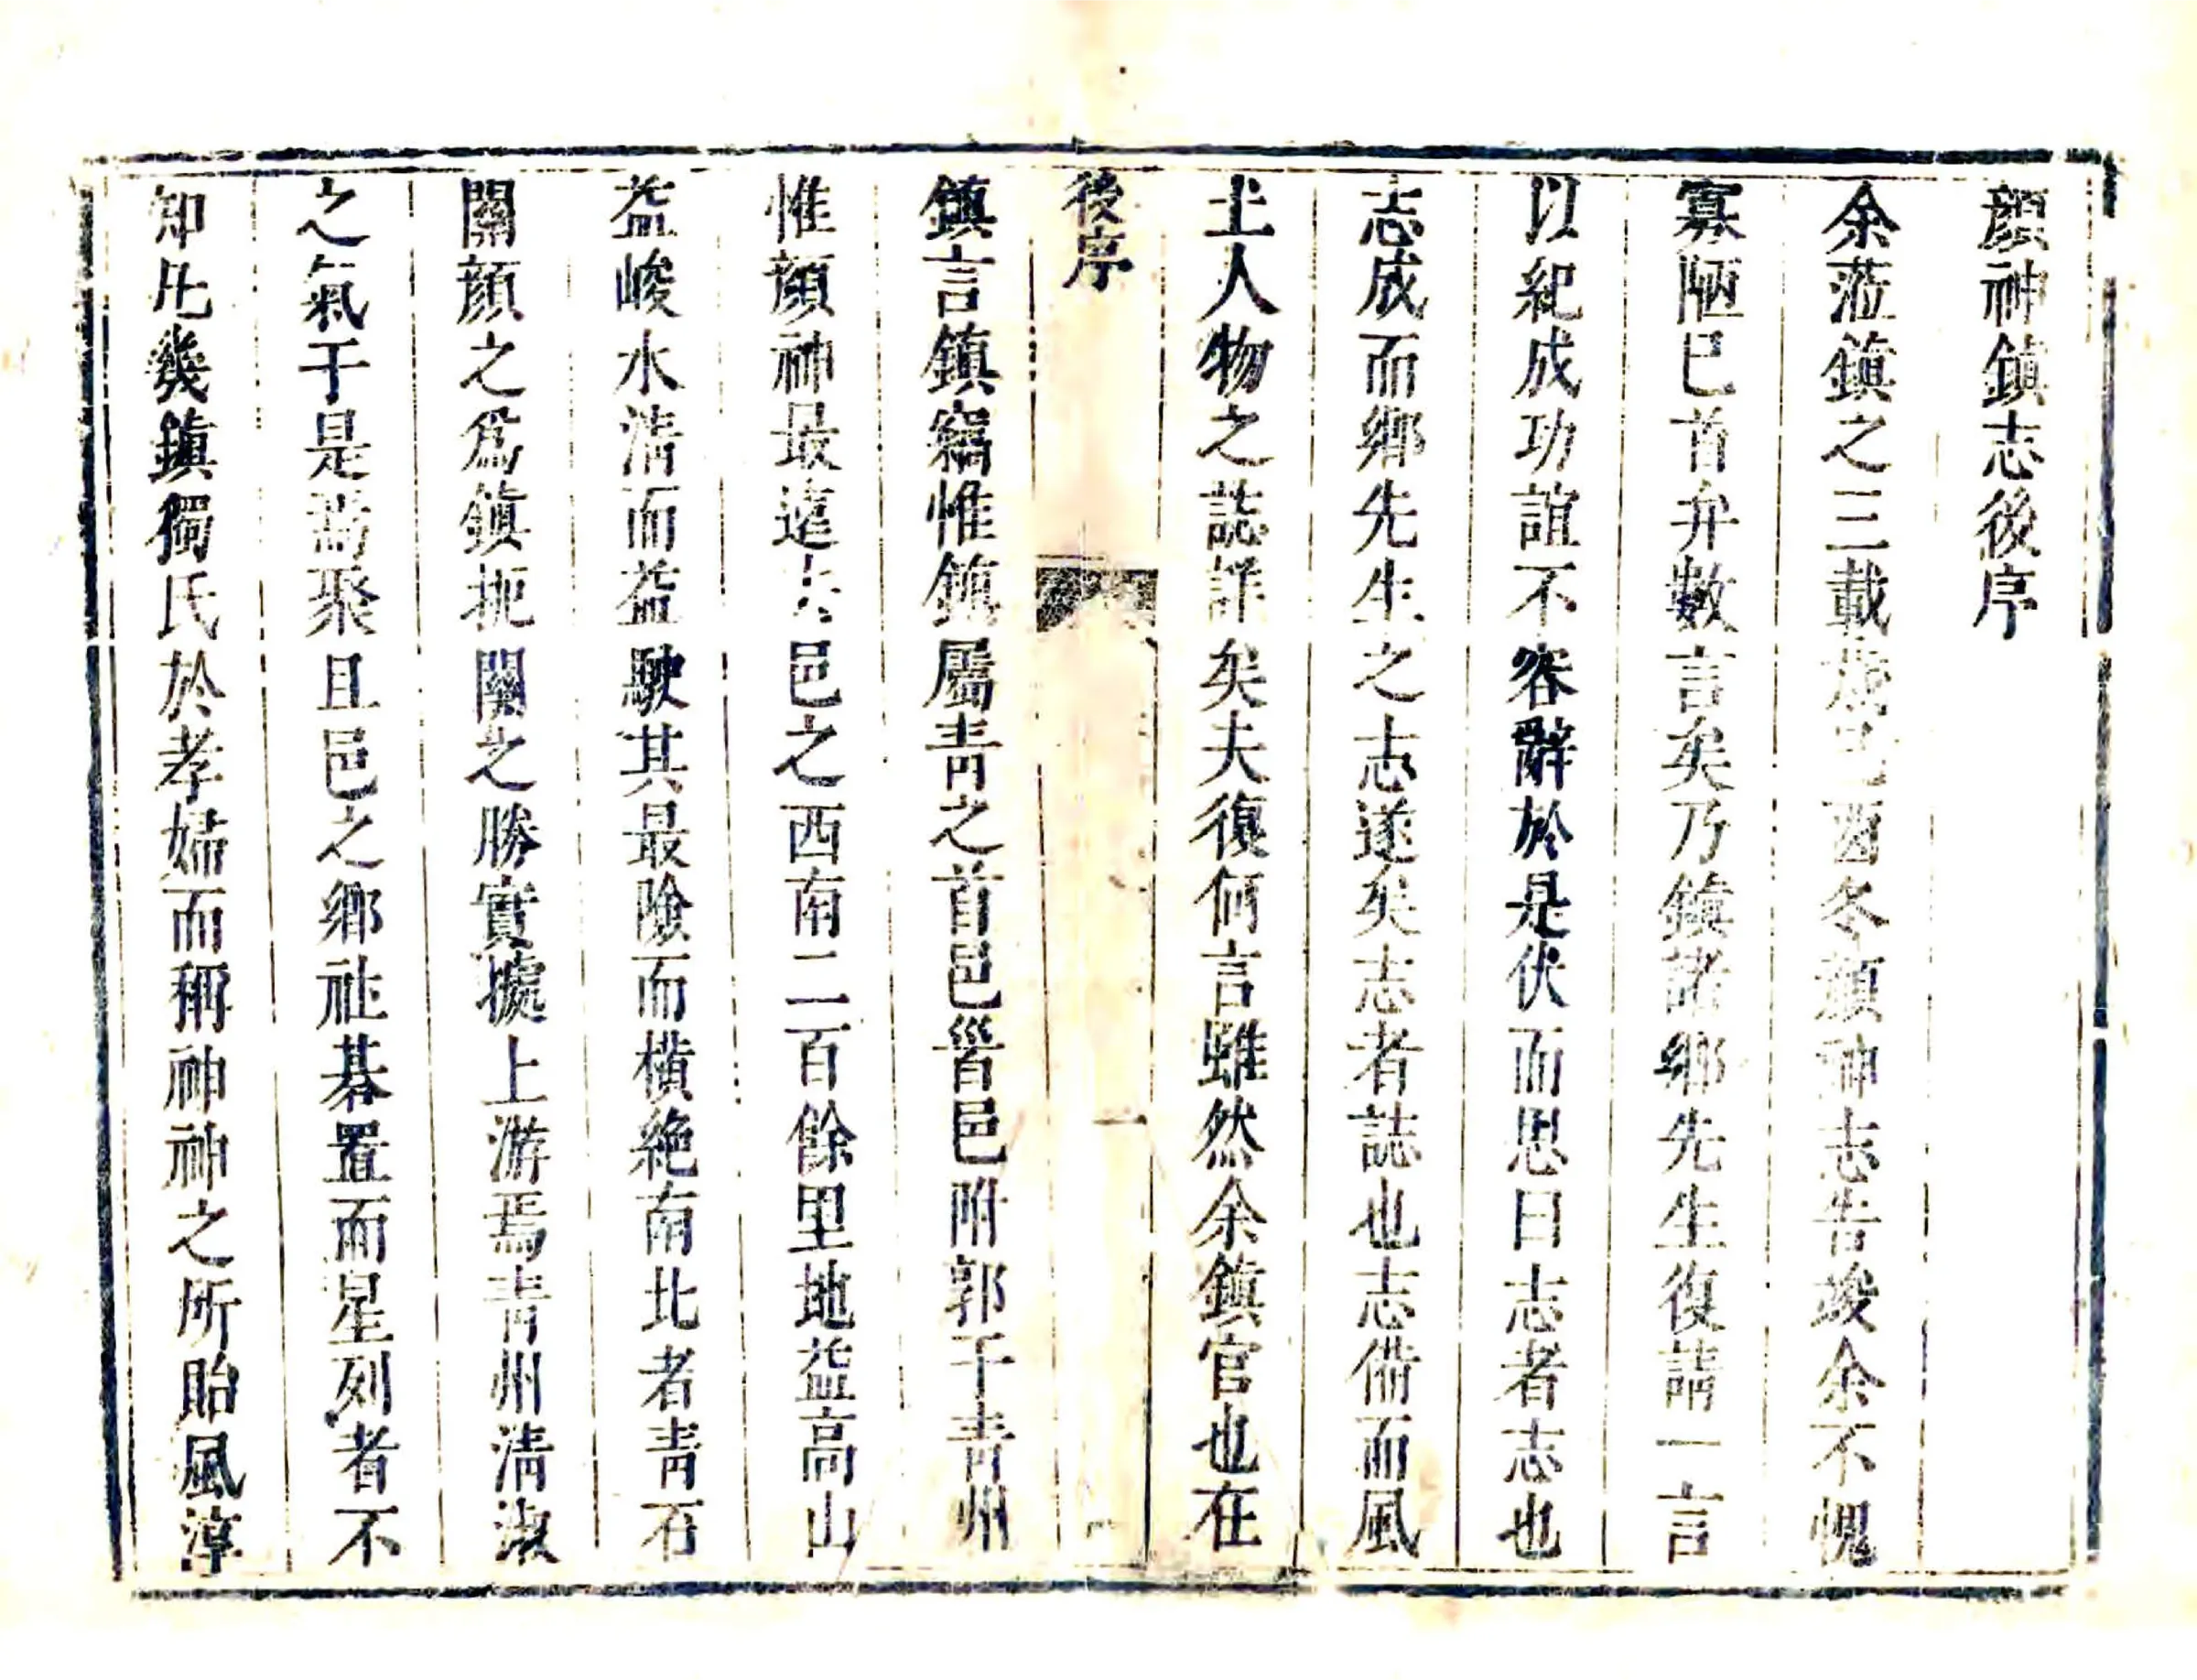 顏神鎮志後序
余蒞鎮之三載歲己酉冬顏神志告竣余不愧
寡陋已首弁數言矣乃鎮諸鄉先生復請一言
以紀成功誼不容辭於是伏而思曰志者志也
志成而鄉先生之志遂矣志者誌也志備而風
土人物之誌詳矣夫復何言雖然余鎮官也在
後序
一
鎮言鎮竊惟鎮屬青之首邑晉邑附郭于青州
惟顏神最遠去邑之西南二百餘里地益高山
益峻水清而益駛其最險而橫絶南北者青石
關顏之為鎮扼關之勝實據上游焉青州清淑
之氣于是焉聚且邑之鄉社碁置而星列者不
知凡幾鎮獨氏於孝婦而稱神神之所貽風淳